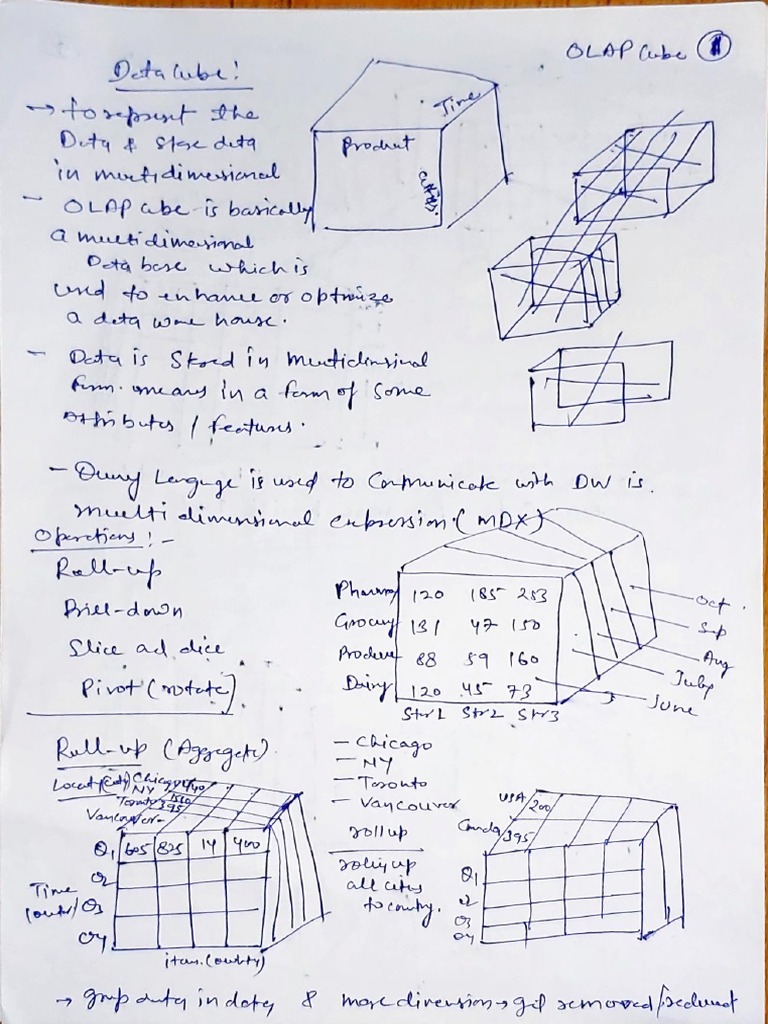 OLAP Cube 1
Data Cube!
→ to represent the
Data & store data
in multidimensional
Time
Product
- OLAP cube is basically
a multidimensional
Data base which is
used to enhance or optimize
a data ware house.
- Data is Stored in multidimensional
form. means in a form of some
attributes / features.
- Query Language is used to Communicate with DW is
multi dimensional expression (MDX)
Operations!-
Roll-up
Drill-down
Slice and dice
Pivot (rotate)
Pharmacy 120 185 253
Grocery 131 47 150
Produce 88 59 160
Dairy 120 45 73
Str1 Str2 Str3
Oct
Sep
Aug
July
June
Roll-up (Aggregate)
- Chicago
- NY
- Toronto
- Vancouver
Location (City) Chicago 440
NY 1560
Toronto 395
Vancouver
Q1 605 825 14 400
Q2
Time
Q3
Q4
item.
rollup
rolling up
all cities
to country.
USA 200
Canada 395
Q1
Q2
Q3
Q4
→ group data in & more dimension → get removed/reduced